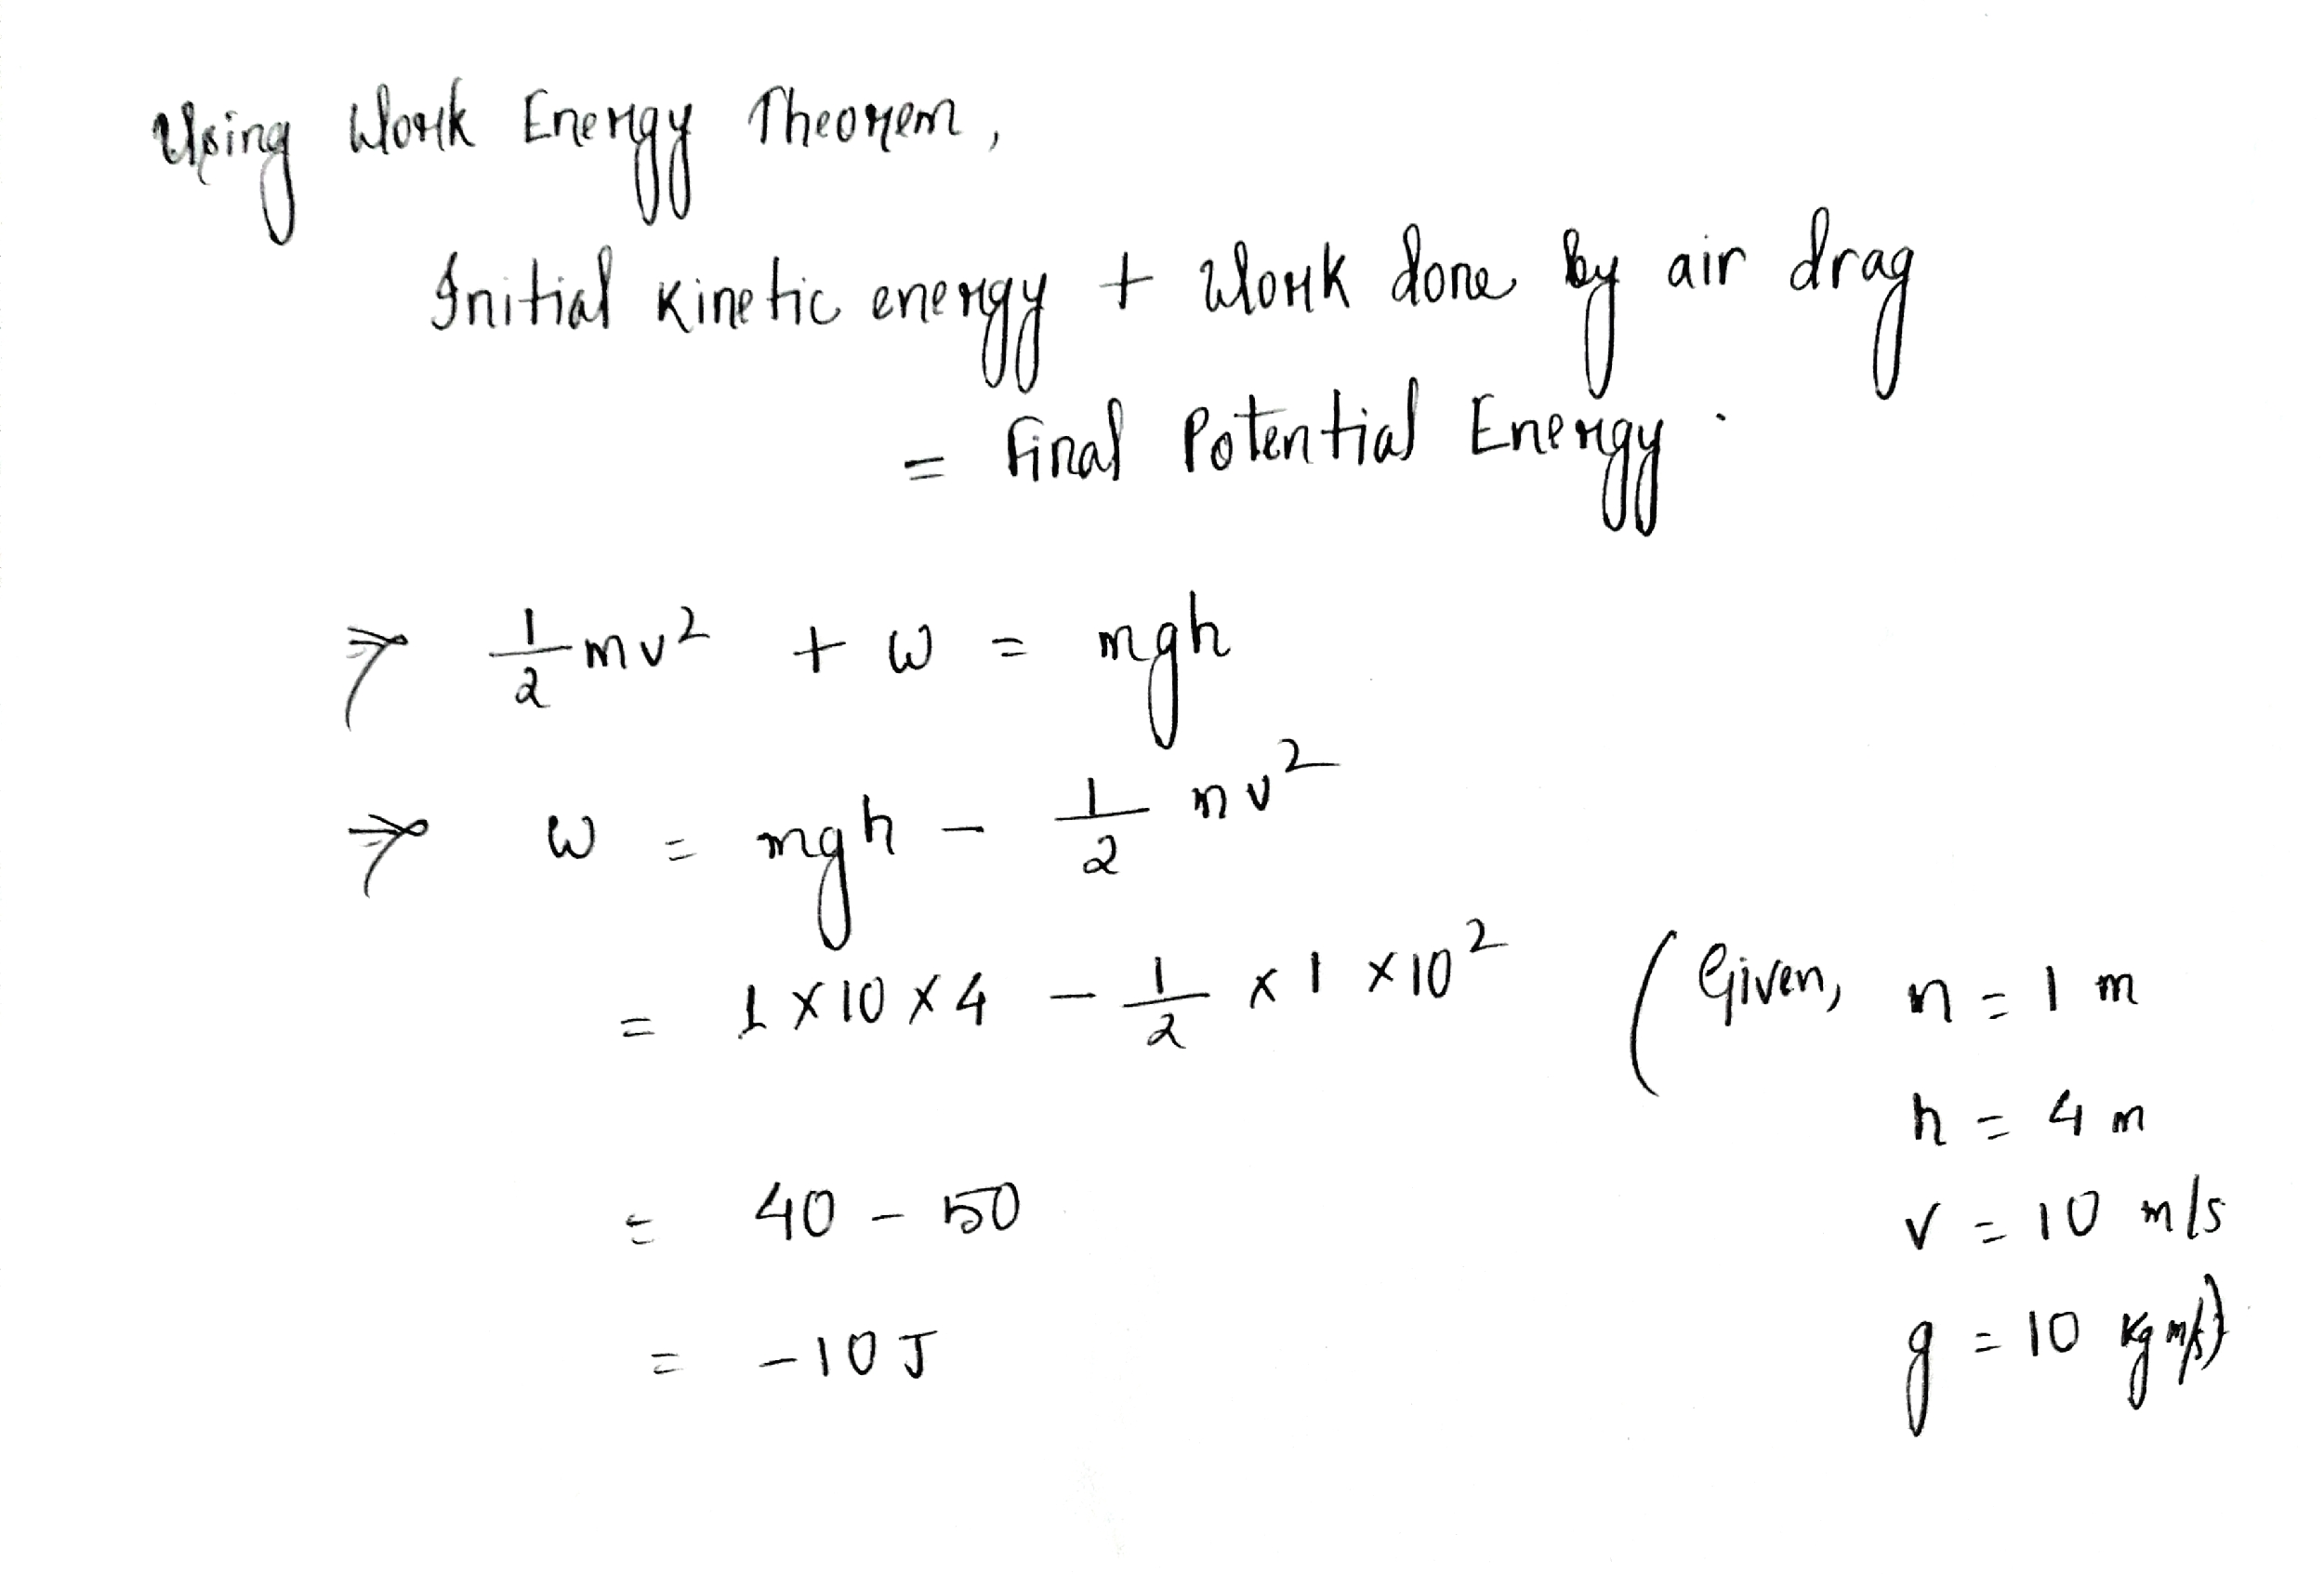 Using Work Energy Theorem,
Initial Kinetic energy + Work done by air drag
= Final Potential Energy.
⇒ 1/2 mv² + W = mgh
⇒ W = mgh - 1/2 mv²
= 1 × 10 × 4 - 1/2 × 1 × 10² (Given, m = 1 m
h = 4 m
= 40 - 50 v = 10 m/s
= -10 J g = 10 kg m/s)